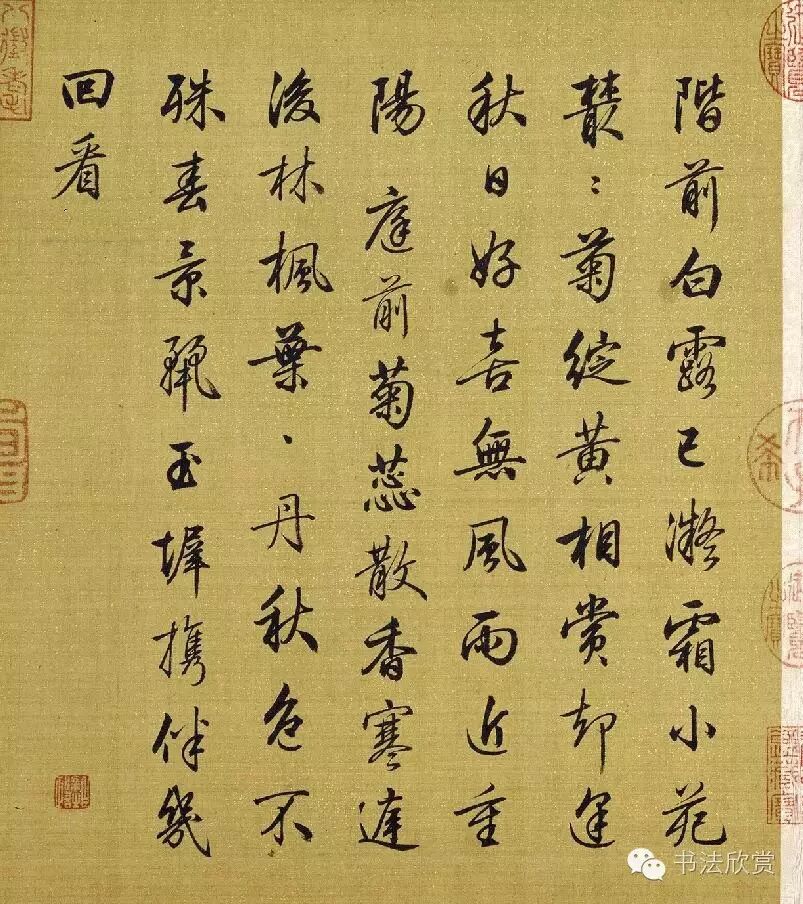 階前白露已凝霜小苑
叢〻菊綻黄相賞却逢
秋日好喜無風雨近重
陽 庭前菊蕊散香寒
後林楓葉、丹秋色不
殊春景玉墀携伴幾
回看
书法欣赏